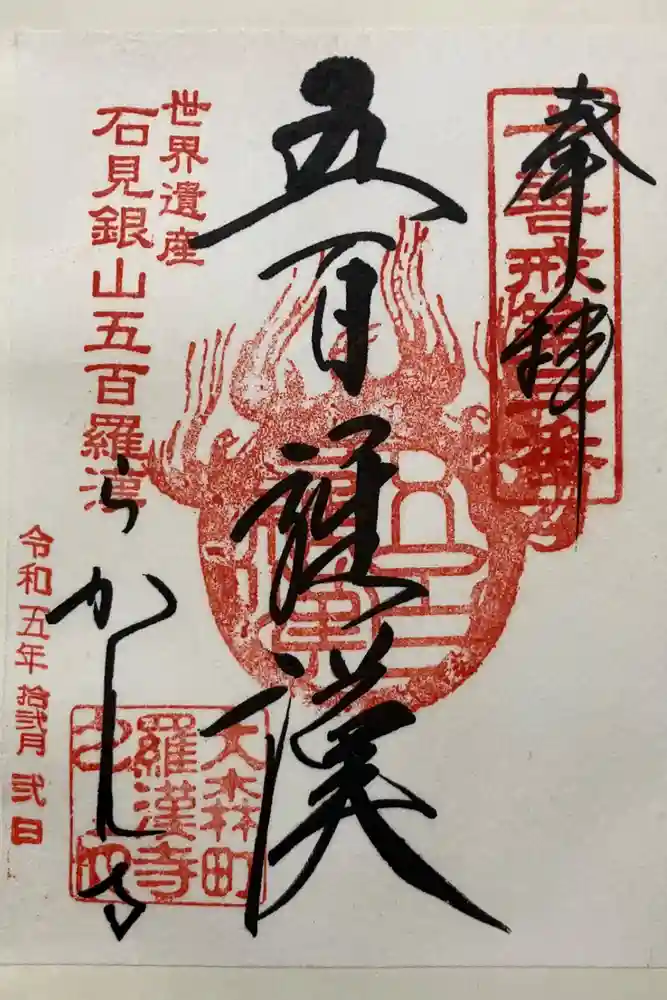 奉拝
五百羅漢
世界遺産
石見銀山五百羅漢
らかん寺
令和五年 拾弐月 弐日
大森町
羅漢寺
之印